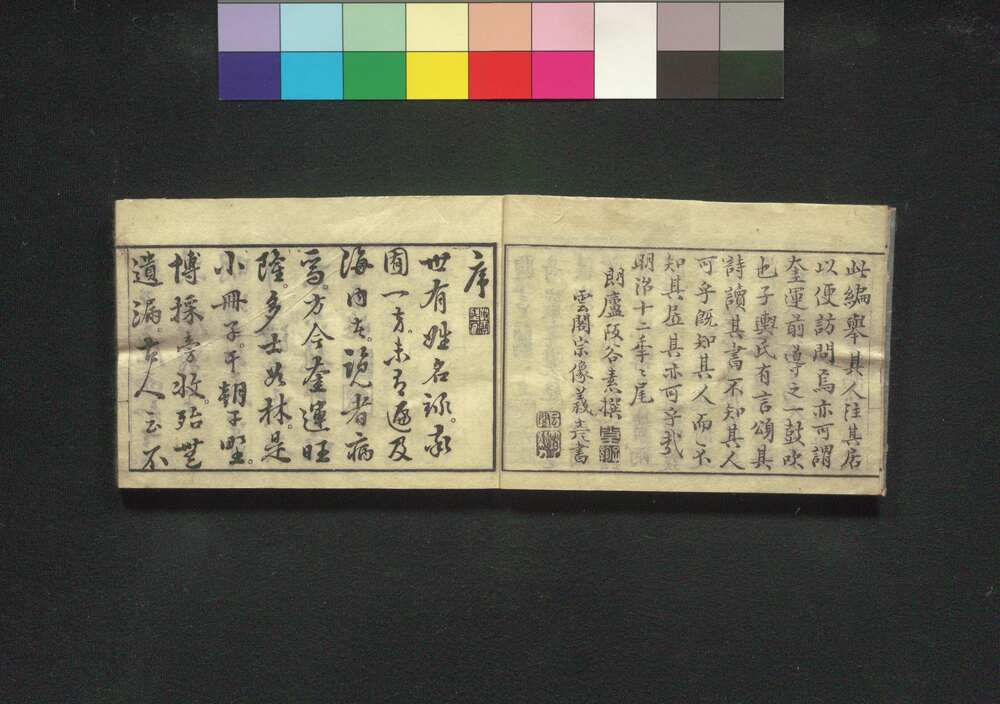 此編舉其人注其居
以便訪問焉亦可謂
奎運前導之一鼓吹
也子輿氏有言頌其
詩讀其書不知其人
可乎既知其人而不
知其居其亦可乎哉
明治十二季之尾
朗廬阪谷素撰
雲閣宗像義書
序
世有姓名錄家
囿一方未有遍及
海內者覽者病
焉方今奎運旺
隆多士如林是
小冊子乎朝手
博採旁收殆無
遺漏古人云不